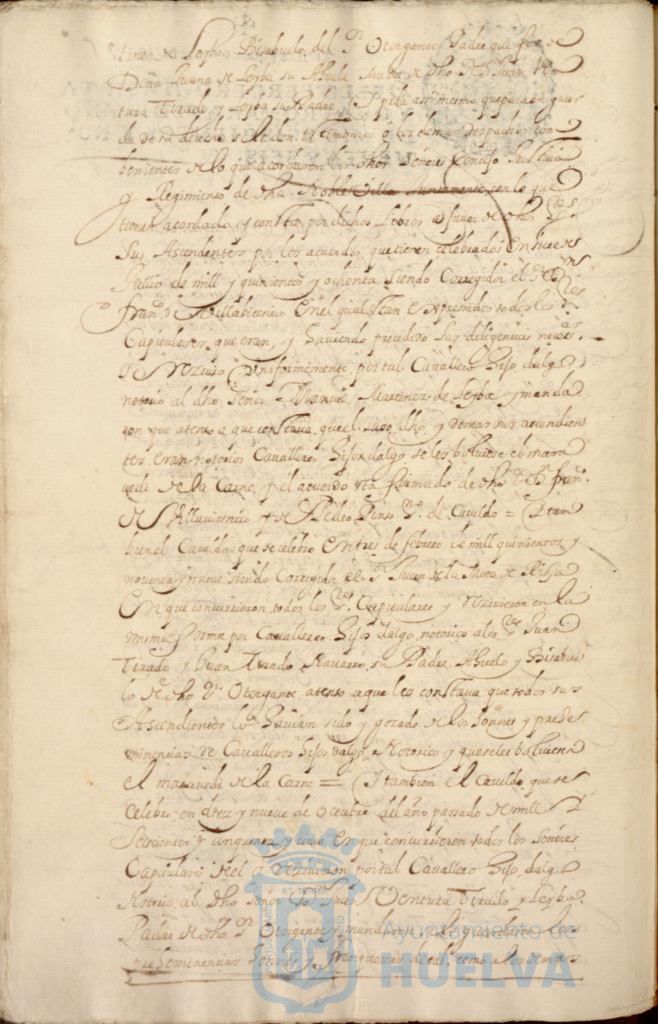 tines de Leyba Bisabuelo del Sr Otorgante Padre que fue de
Doña Juana de Leyba su Abuela Madre de dho Sr Dn Juan Ven
tura Tirado y Leyba su Padre, Y pida asi mesmo que para en guar
da de su derecho se le den testimonio o los demas despachos con
benientes de lo que acordaren los dhos Señores Conzejo Justicia
y Regimiento de dha Noble Villa Juntamente con lo que
tienen acordado, y consta por dichos Libros a favor de dhos Sres
Sus Ascendentes por los acuerdos, que tienen celebrados en
Jullio de mill y quinientos y ochenta siendo Corregidor el
Fran.co de Villabicencio en el qual estan expresados todos los
Capitulares que eran, y haviendo precedido las diligencias neces.as
se reziuio Uniformemente por tal Cavallero hijo dalgo
notorio al dho Señor Manuel Martinez de Leyba y manda
ron que atento a que constava que el suso dho y demas sus ascendien
tes eran notorios Cavalleros hijos dalgo se les bolviese el mara
vedi de la Carne, y el acuerdo esta firmado de dho Sr Dn Fran.co
de Villavicencio y de Pedro Pinto Sno de Cavildo = Y tam
bien el Cavildo que se celebro en tres de febrero de mill quinientos y
noventa y nueve siendo Corregidor el Sr Juan de la Mota de
En que concurrieron todos los Sres Capitulares y Reziuieron en la
misma forma por Cavalleros hijos dalgo notorios a los Sres Juan
Tirado y Juan Tirado Navarro su Padre Abuelo y Bisabue
lo de dho Sr Otorgante atento a que les constava que todos sus
Ascendientes lo havian sido y gozado de los honores y prehe
minencias de Cavalleros hijos dalgo Notorios y que se les bolviera
el maravedi de la Carne = Y tambien el Cavildo que se
Celebro en diez y nueve de Octubre del año passado de mill
Seiscientos y cinquenta y uno en que concurrieron todos los Señores
Capitulares del y reziuieron por tal Cavallero hijo dalgo
Notorio al dho Señor Dn Juan Ventura Tirado y Leyba
Padre de dho Sr Otorgante y mandaron se le guardaran las
preheminencias honores y franquezas de tal, como a los demas
Ayuntamiento de
HUELVA